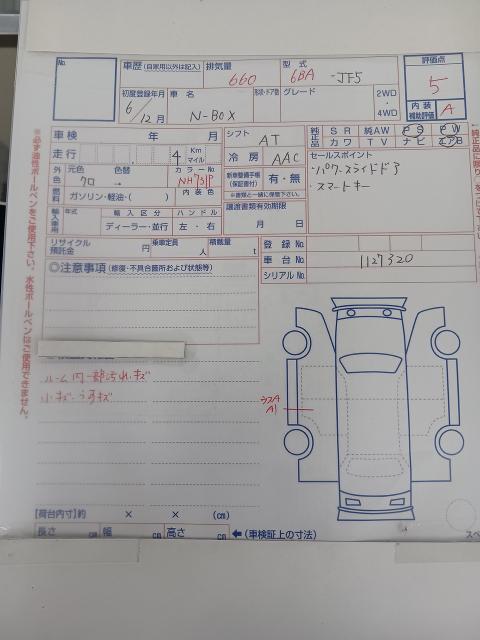 No.
車歴 (自家用以外は記入)
排気量
660
型式
6BA -JF5
評価点
5
初度登録年月
6/12月
車名
N-BOX
形状・ドア数
グレード
2WD
・
4WD
内装
補助評価
A
車検 年 月
シフト
AT
純正品
SR 純AW PS PW
カワ TV ナビ エアB
走行
4 Km
マイル
冷房
AAC
セールスポイント
・パワースライドドア
・スマートキー
外色
元色
クロ
色替
→
カラーNo
NH731P
新車整備手帳
(保証書付)
有・無
※書類と一緒に保管下さい。
燃料
ガソリン・軽油・( )
内装色
譲渡書類有効期限
月 日
輸入車用
年式
輸入区分
ディーラー・並行
ハンドル
左・右
リサイクル
預託金
円
乗車定員
人
積載量
t
登録No.
車台No.
1127320
シリアルNo.
◎注意事項 (修復・不具合箇所および状態等)
ルーム内一部汚れ.キズ
小キズ・うすキズ
A1
【荷台内寸】約 × × (cm)
長さ cm 幅 cm 高さ cm
←(車検証上の寸法)
※必ず油性ボールペンをご使用下さい。水性ボールペンはご使用できません。